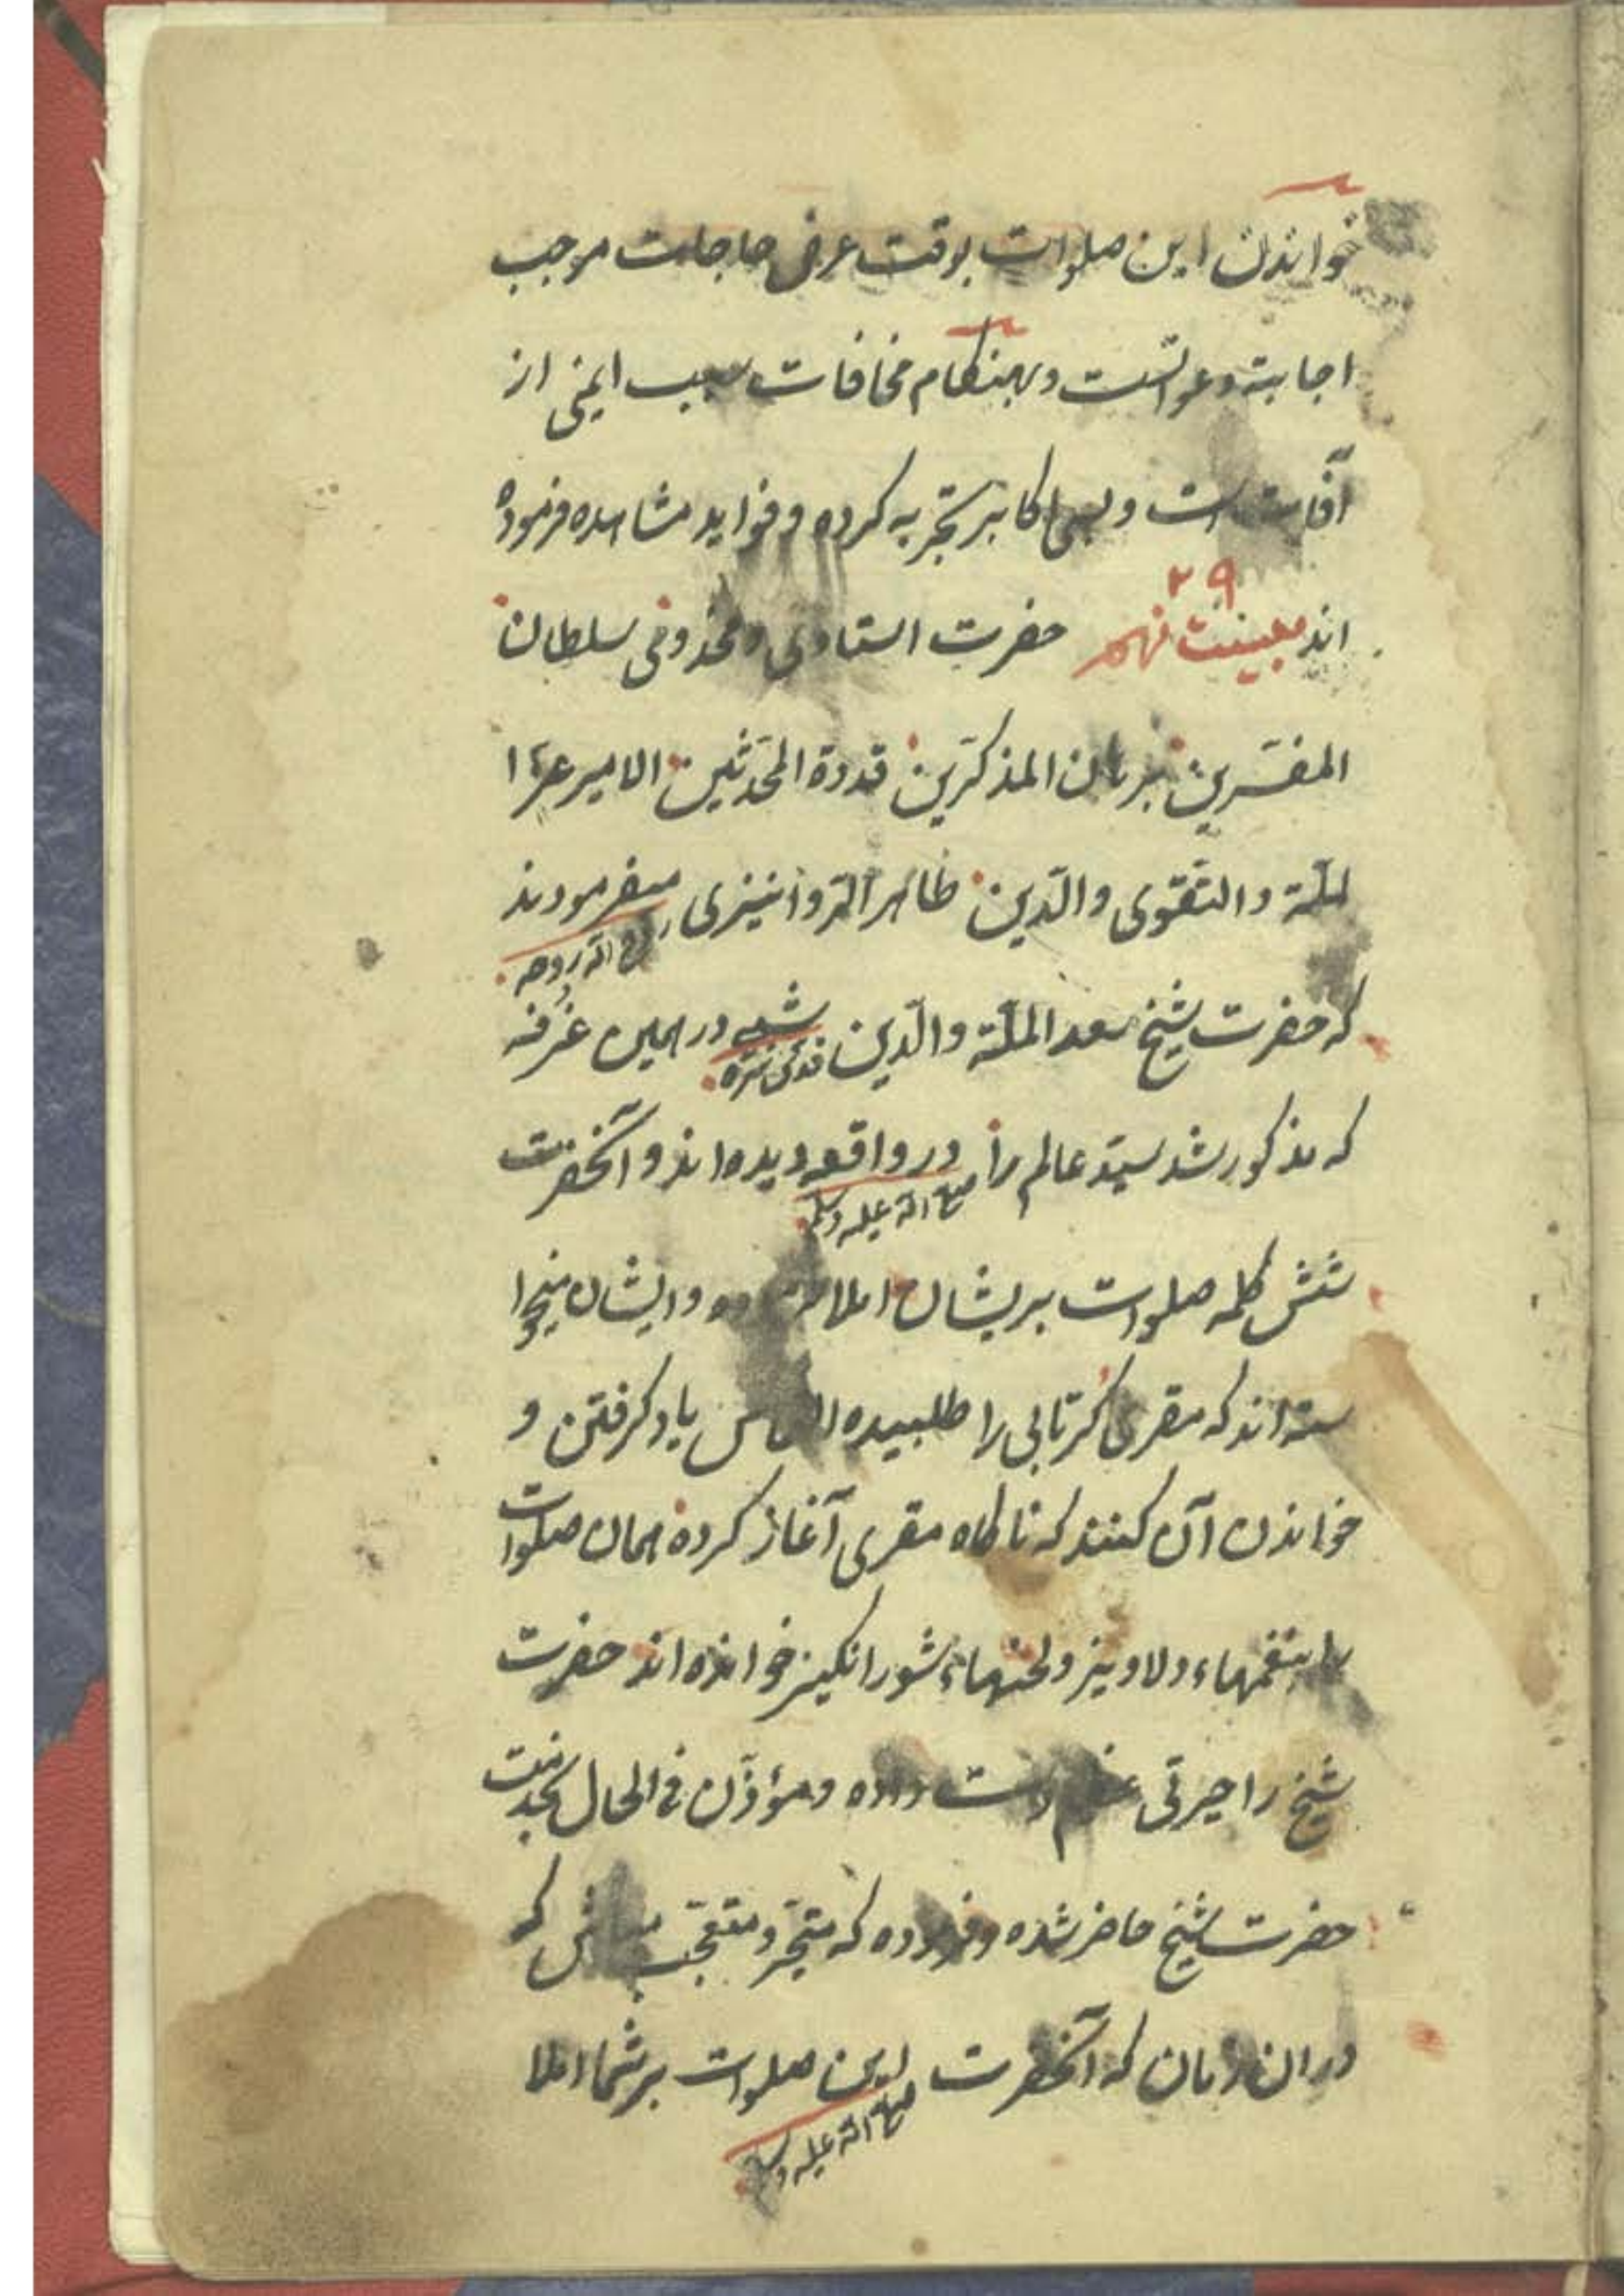 خواندن این صلوات بوقت عرض حاجات موجب
اجابة دعواتست و بهنکام مخافات سبب ایمنی از
آفات است و بسی اکابر تجربه کرده و فواید مشاهده فرموده
۲۹
اند بیست نهم حضرت استادی و مخدومی سلطان
المفسّرین برهان المذکّرین قدوة المحدّثین الامیر عزّ ا
لملّة والتقوی والدّین طاهر میفرمودند
روّح الله روحه
که حضرت شیخ سعد الملّة والدّین شبی در همین غرفه
قدّس سرّه
که مذکور شد سیّد عالم را در واقعه دیده اند و آنحضرت
صلی الله علیه وسلم
شش کلمه صلوات بریشان املا وایشان میخوا
سته اند که مقری را طلبیده التماس یاد کرفتن و
خواندن آن کنند که ناکاه مقری آغاز کرده همان صلوات
را بنغمهاء دلاویز ولحنهاء شورانکیز خوانده اند حضرت
شیخ را حیرتی عظیم دست داده ومؤذّن فی الحال بخدمت
حضرت شیخ حاضر شده و فرموده که متحیّر و متعجّب مباش که
دران زمان که آنحضرت این صلوات بر شما املا
صلی الله علیه وسلم